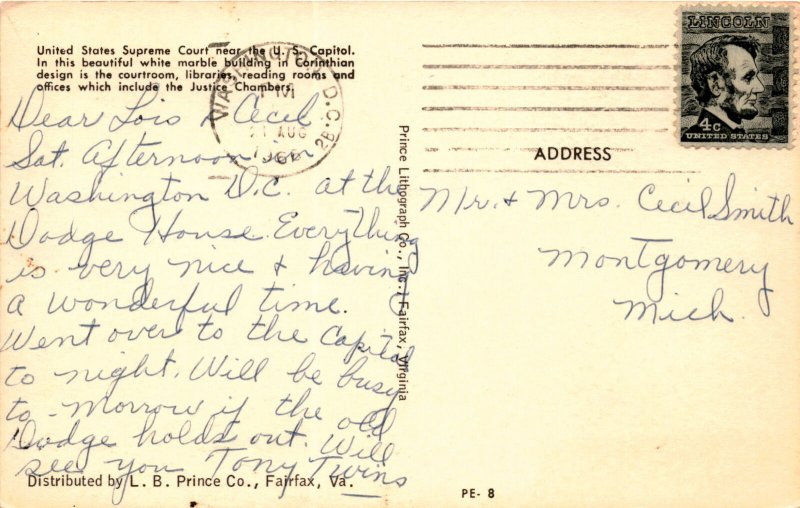 United States Supreme Court near the U. S. Capitol.
In this beautiful white marble building in Corinthian
design is the courtroom, libraries, reading rooms and
offices which include the Justice Chambers.
Dear Lois & Cecil
Sat. Afternoon in
Washington D.C. at the
Dodge House. Everything
is very nice & having
a wonderful time.
Went over to the Capitol
to night. Will be busy
to-morrow if the old
Dodge holds out. Will
see you Tony Twins
Distributed by L. B. Prince Co., Fairfax, Va.
WASHINGTON, D.C.
PM
21 AUG
Prince Lithograph Co., Inc., Fairfax, Virginia
LINCOLN
4c
UNITED STATES
ADDRESS
Mr. & Mrs. Cecil Smith
Montgomery
Mich.
PE- 8